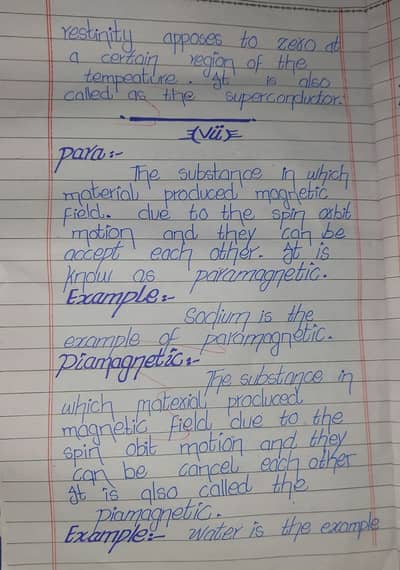 restinity apposes to zero at
a certain region of the
tempeature. It is also
called as the superconductor.
(vii)
Para:-
The substance in which
material produced magnetic
field. due to the spin orbit
motion and they can be
accept each other. It is
know as paramagnetic.
Example:-
Sodium is the
example of paramagnetic.
Diamagnetic:-
The substance in
which material produced
magnetic field due to the
spin obit motion and they
can be cancel each other
It is also called the
Diamagnetic.
Example:- Water is the example